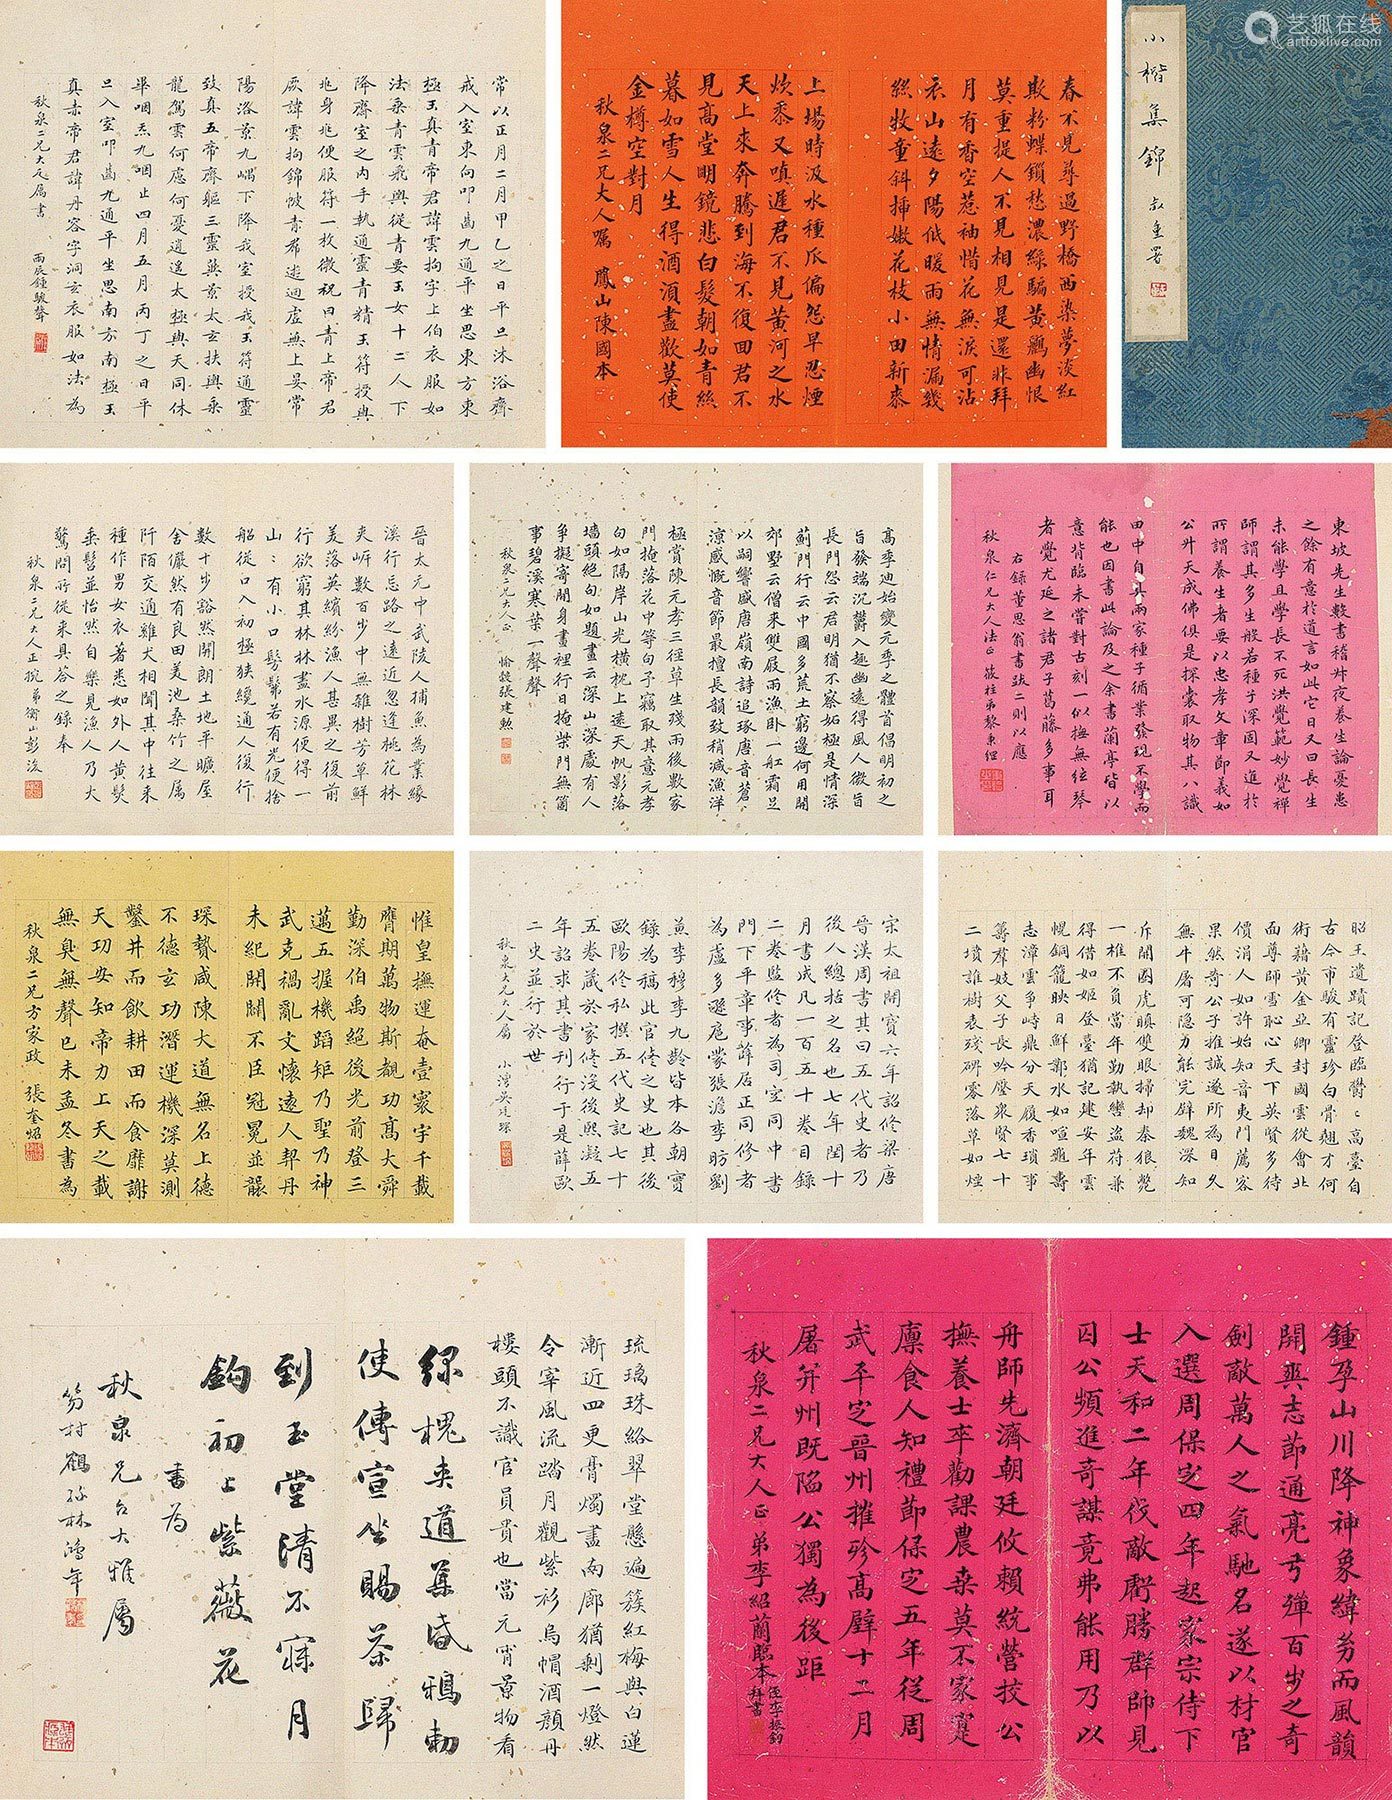 艺狐在线
artfoxlive.com
小楷集錦 叔重署
春不見尋過野橋西染夢淡紅
欺粉蝶鎖愁濃綠騙黃鸝幽恨
莫重提人不見相見是還非拜
月有香空惹袖惜花無淚可沾
衣山遠夕陽低暖雨無情漏幾
絲牧童斜插嫩花枝小田新黍
上場時汲水種瓜偏怨早忍煙
炊黍又嗔遲君不見黃河之水
天上來奔騰到海不復回君不
見高堂明鏡悲白髮朝如青絲
暮如雪人生得酒須盡歡莫使
金樽空對月
秋泉二兄大人囑 鳳山陳國本
常以正月二月甲乙之日平旦沐浴齊
戒入室東向叩齒九通平坐思東方東
極玉真青帝君諱雲拘字上伯衣服如
法乘青雲飛輿從青要玉女十二人下
降齋室之內手執通靈青精玉符授與
兆身兆便服符一枚微祝曰青上帝君
厥諱雲拘錦帔青裙遊迴虛無上晏常
陽洛景九嵎下降我室授我玉符通靈
致真五帝齊軀三靈翼景太玄扶輿乘
龍駕雲何慮何憂遨遊太極與天同休
畢咽炁九咽止四月五月丙丁之日平
旦入室叩齒九通平坐思南方南極玉
真赤帝君諱丹容字洞玄衣服如法為
秋泉二兄大兄屬書 丙辰鍾駿聲
東坡先生數書稽叔夜養生論憂患
之餘有意於道言如此它日又曰長生
未能學且學長不死洪覺範妙覺禪
師謂其多生般若種子深固又進於
所謂養生者要以忠孝文章節義如
公升天成佛俱是探囊取物其八識
田中自具兩家種子循業發現不學而
能也因書此論及之余書蘭亭皆以
意背臨未嘗對古刻一似撫無絃琴
者覺尤延之諸君子葛藤多事耳
右錄董思翁書跋二則以應
秋泉仁兄大人法正 黎秉
高季迪始變元季之體首倡明初之
旨發端沉鬱入趣幽遠得風人微旨
長門怨云君明猶不察妬極是情深
薊門行云中國多荒土窮邊何用開
郊墅云僧來雙屐雨漁卧一舡霜足
以嗣響盛唐嶺南詩追琢唐音蒼
涼感慨音節最擅長韻致稍減漁洋
極賞陳元孝三徑草生殘雨後數家
門掩落花中等句予竊取其意元孝
句如隔岸山光橫枕上遠天帆影落
墻頭絕句如題畫云深山深處有人
爭擬寄閒身畫裡行日掩柴門無箇
事碧溪寒葉一聲聲
秋泉二兄大人正 愉毅張建勲
晉太元中武陵人捕魚為業緣
溪行忘路之遠近忽逢桃花林
夾岍數百步中無雜樹芳草鮮
美落英繽紛漁人甚異之復前
行欲窮其林林盡水源便得一
山山有小口髣髴若有光便捨
船從口入初極狹纔通人復行
數十步豁然開朗土地平曠屋
舍儼然有良田美池桑竹之屬
阡陌交通雞犬相聞其中往來
種作男女衣著悉如外人黃髮
垂髫並怡然自樂見漁人乃大
驚問所從來具答之錄奉
秋泉二兄大人正捥弟衡山彭浚
昭王遺蹟記登臨鬱鬱高臺自
古今市駿有靈珍白骨魏才何
術藉黃金亞卿封國雲從會北
面尊師雪恥心天下英賢多待
價涓人如許始知音夷門薦客
果然奇公子推誠遂所為日久
無牛屠可隱力能完璧魏深知
斥開國虎瞋雙眼掃却秦狼斃
一椎不負當年勤執轡盜符兼
得借如姬登臺猶記建安年雲
幌銅籠映日鮮鄴水如喧黿濤
志漳雲爭峙鼎分天履香瑣事
籌群妓父子長吟壓眾賢七十
二墳誰樹表殘碑零落草如煙
宋太祖開寶六年詔修梁唐
晉漢周書其曰五代史者乃
後人總括之名也七年閏十
月書成凡一百五十卷目錄
二卷監修者為司空同中書
門下平章事薛居正同修者
為盧多遜扈蒙張澹李昉劉
兼李穆李九齡皆本各朝實
錄為稿此官修之史也其後
歐陽修私撰五代史記七十
五卷藏於家修沒後熙凝五
年詔求其書刊行于是薛歐
二史並行於世
秋泉大兄大人屬 小灣吳廷琛
惟皇撫運奄壹寰宇千載
膺期萬物斯覩功高大舜
勤深伯禹絕後光前登三
邁五握機蹈矩乃聖乃神
武克禍亂文懷遠人契丹
未紀開闢不臣冠冕並襲
琛贄咸陳大道無名上德
不德玄功潛運機深莫測
鑿井而飲耕田而食靡謝
天功安知帝力上天之載
無臭無聲已未孟冬書為
秋泉二兄方家政 張奎
鍾孕山川降神象緯芳而風韻
開爽志節通亮弯彈百步之奇
劍敵萬人之氣馳名遂以材官
入選周保定四年起家宗侍下
士天和二年伐敵齊勝群師見
囚公頻進奇謀竟弗能用乃以
舟師先濟朝廷攸賴統營技公
撫養士卒勸課農桑莫不家寔
廩食人知禮節保定五年從周
武平定晉州摧殄高壁十二月
屠并州既陷公獨為後距
秋泉二兄大人正弟李紹蘭臨本
琉璃珠絡翠堂懸遍簇紅梅與白蓮
漸近四更膏燭盡南廊猶剩一燈然
令宰風流踏月觀紫衫烏帽酒顏丹
樓頭不識官員貴也當元宵景物看
綠槐夾道集昏鴉勅
使傳宣坐賜茶歸
到玉堂清不寐月
鉤初上紫薇花
書為
秋泉兄台大雅屬
林鴻年